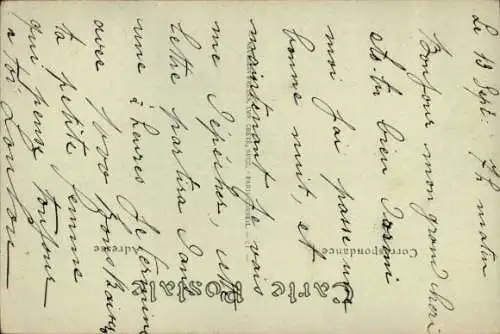 Le 13 Sept. 7h matin
Bonjour mon grand cheri
As-tu bien Dormi
moi j'ai passé une
bonne nuit, et
maintenant je vais
me dépécher, Ma
Lettre partira Dans
une heures Je termine
avec 1000
ta petite femme
qui pense toujours
a toi.
Carte Postale
Correspondance
Adresse